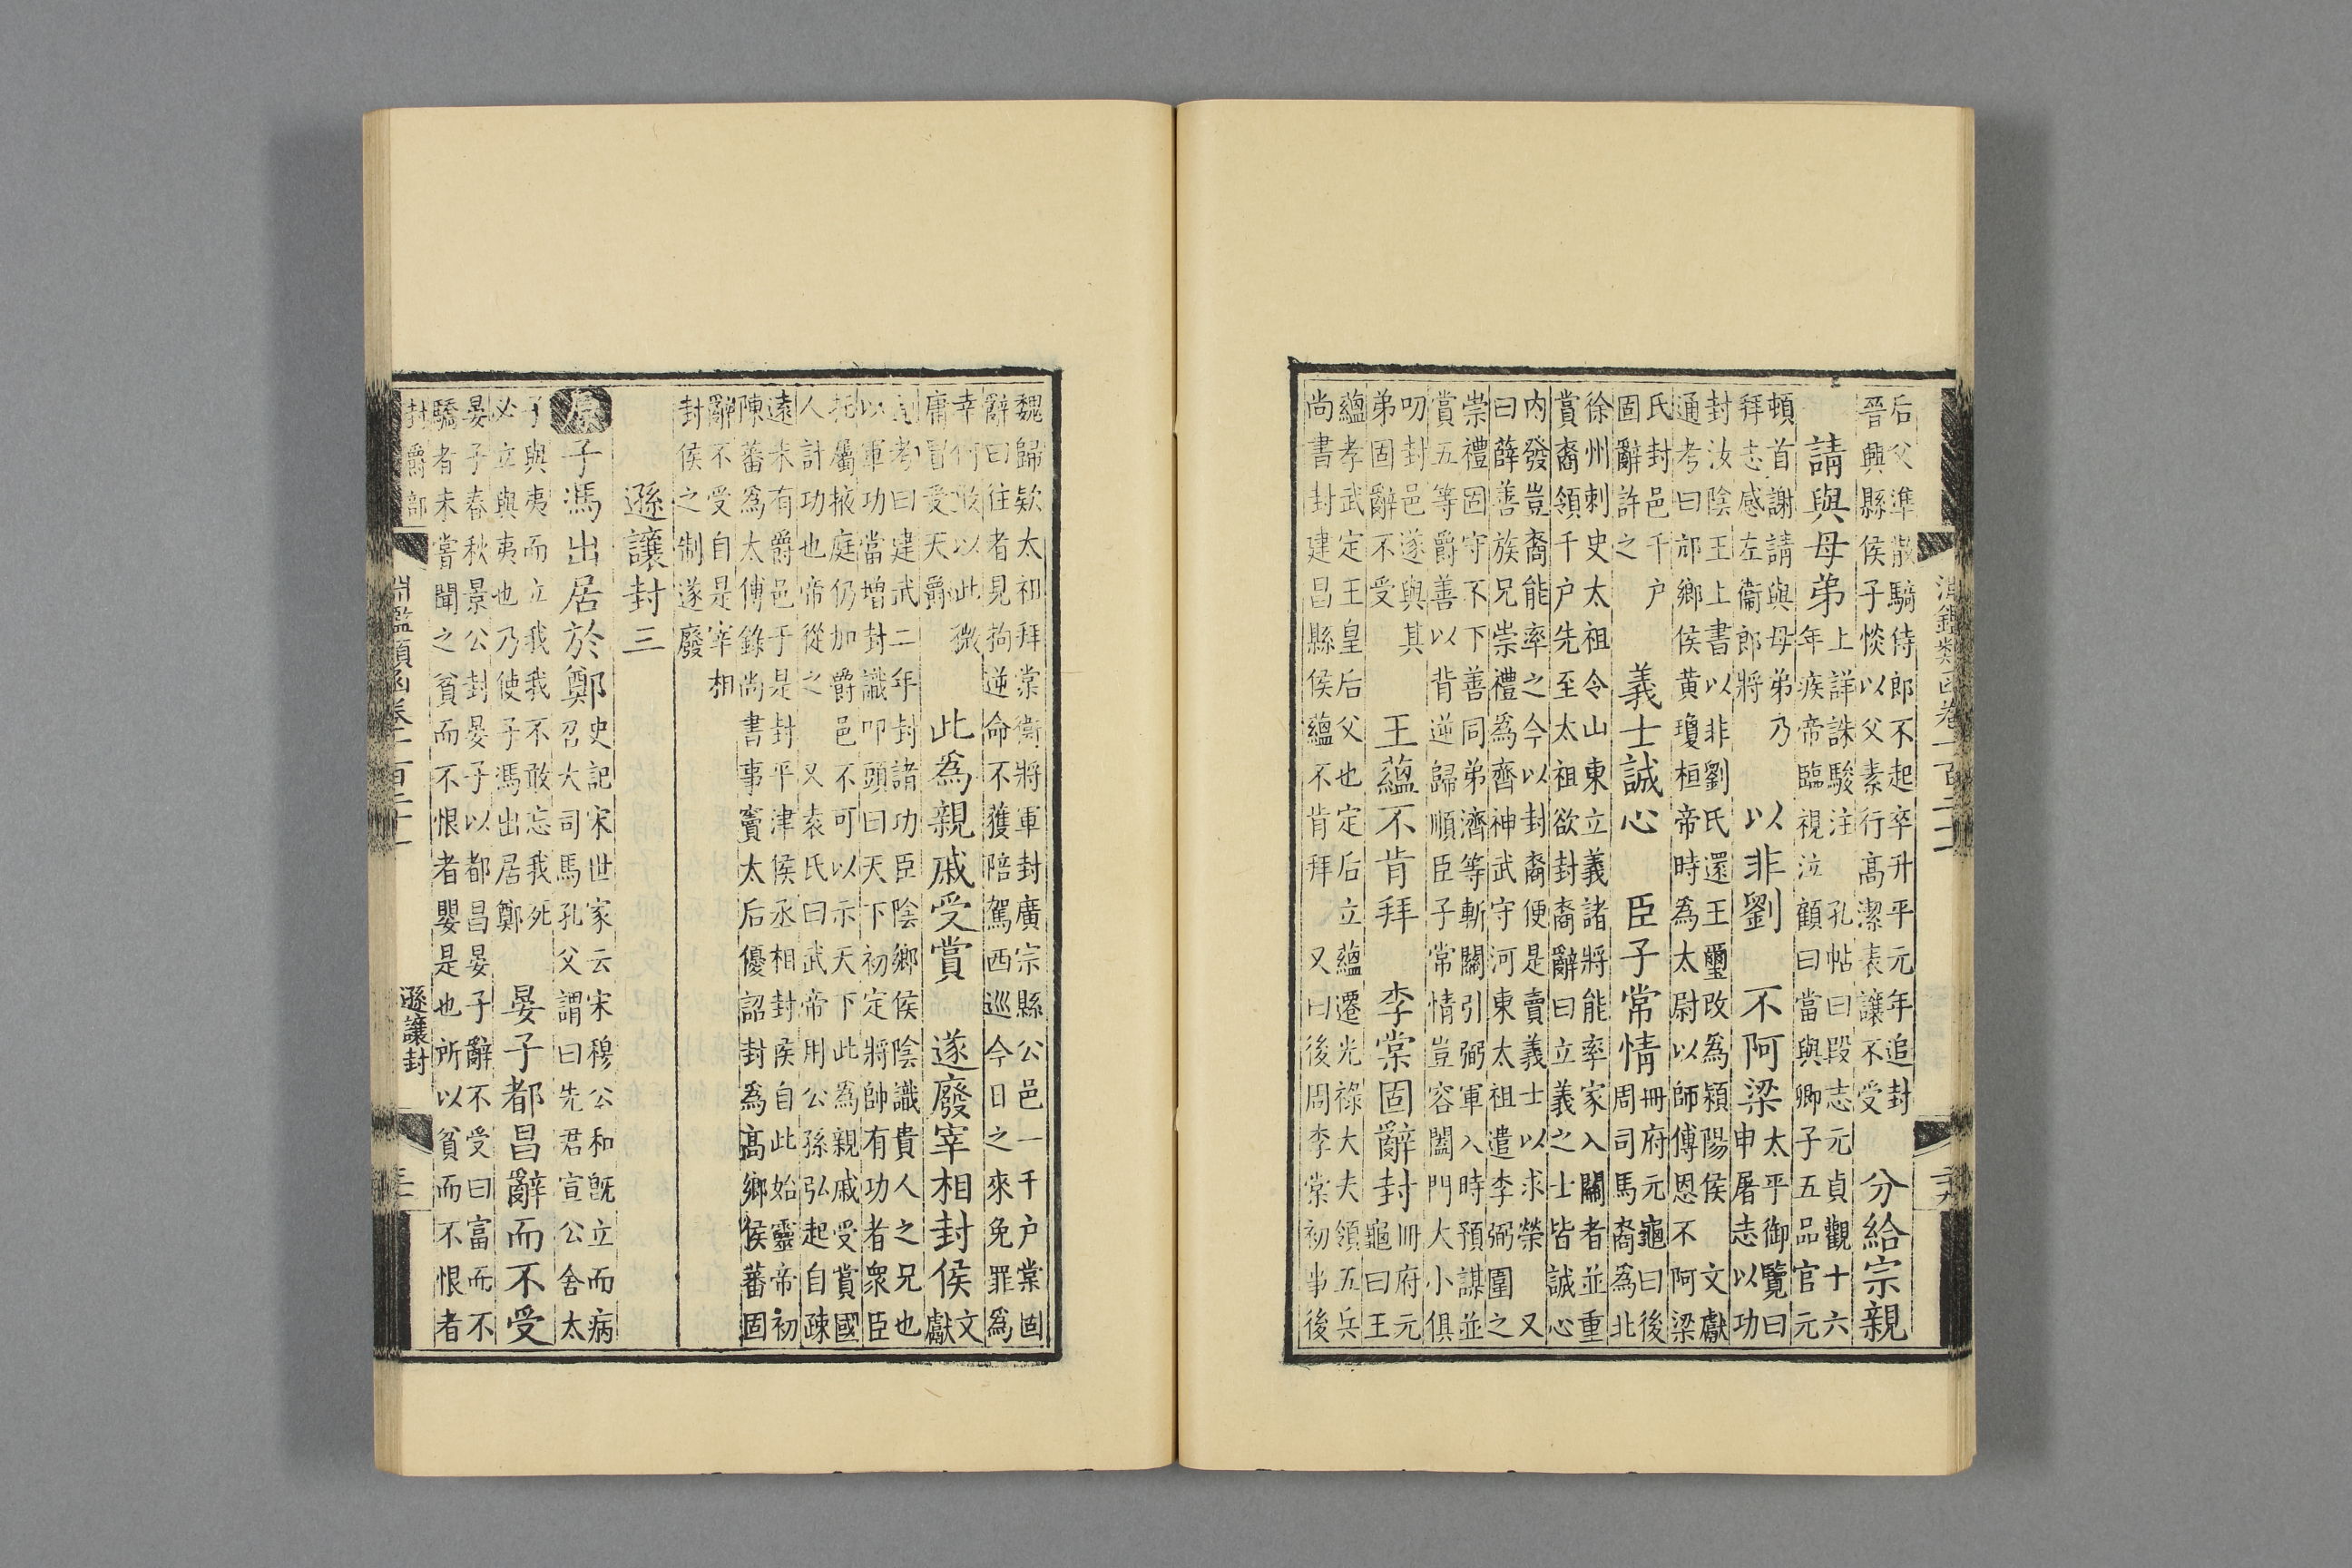 后父準散騎侍郎不起卒升平元年追封
晉興縣侯子惔以父素行高潔表讓不受
分給宗親
請與母弟
上詳誅駿注　孔帖曰段志元貞觀十六
年疾帝臨視泣顧曰當與卿子五品官元
頓首謝請與母弟乃
拜志感左衞郎將
以非劉　不阿梁
太平御覽曰
申屠志以功
封汝陰王上書以非劉氏還王璽改爲潁陽侯　文獻
通考曰邟鄉侯黃瓊桓帝時爲太尉以師傅恩不阿梁
氏封邑千户
固辭許之
義士誠心　臣子常情
冊府元龜曰後
周司馬裔爲北
徐州刺史太祖令山東立義諸將能率家入關者並重
賞裔領千户先至太祖欲封裔辭曰立義之士皆誠心
内發豈裔能率之今以封裔便是賣義士以求榮　又
曰薛善族兄崇禮爲齊神武守河東太祖遣李弼圍之
崇禮固守不下善同弟濟等斬關引弼軍入時預謀並
賞五等爵善以背逆歸順臣子常情豈容闔門大小俱
叨封邑遂與其
弟固辭不受
王蘊不肯拜　李棠固辭封
冊府元
龜曰王
蘊孝武定王皇后父也定后立蘊遷光祿大夫領五兵
尚書封建昌縣侯蘊不肯拜　又曰後周李棠初事後
魏歸欵太祖拜棠衞將軍封廣宗縣公邑一千户棠固
辭曰往者見拘逆命不獲陪駕西巡今日之來免罪爲
幸何敢以此微
庸冒受天爵
此爲親戚受賞　遂廢宰相封侯
文
獻
考曰建武二年封諸功臣陰鄉侯陰識貴人之兄也
以軍功當增封識叩頭曰天下初定將帥有功者衆臣
托屬掖庭仍加爵邑不可以示天下此爲親戚受賞國
人計功也帝從之　又袁氏曰武帝用公孫弘起自疎
遠未有爵邑于是封平津侯丞相封侯自此始靈帝初
陳蕃爲太傅錄尚書事竇太后優詔封爲高鄉侯蕃固
辭不受自是宰相
封侯之制遂廢
遜讓封三
原
子馮出居於鄭
史記宋世家云宋穆公和旣立而病
召大司馬孔父謂曰先君宣公舍太
子與夷而立我我不敢忘我死
必立與夷也乃使子馮出居鄭
晏子都昌辭而不受
晏子春秋景公封晏子以都昌晏子辭不受曰富而不
驕者未嘗聞之貧而不恨者嬰是也所以貧而不恨者
封爵部
遜讓封